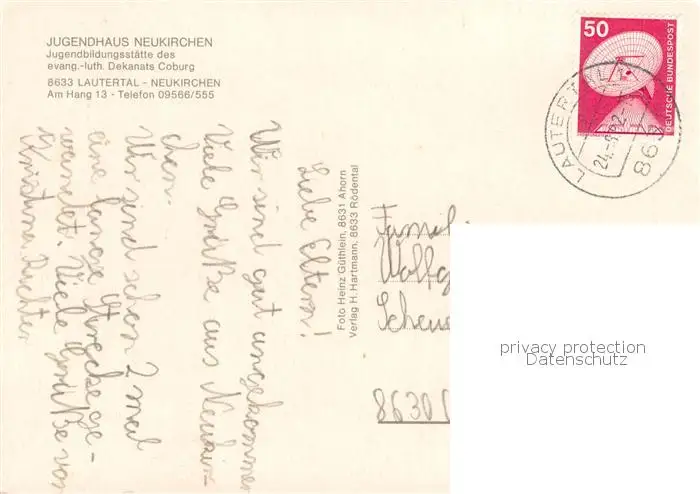 JUGENDHAUS NEUKIRCHEN
Jugendbildungsstätte des
evang.-luth. Dekanats Coburg
8633 LAUTERTAL - NEUKIRCHEN
Am Hang 13 - Telefon 09566/555
50
DEUTSCHE BUNDESPOST
LAUTERTAL
863
Liebe Eltern!
Wir sind gut angekommen
Viele Grüße aus Neukir-
chen.
Wir sind schon 2 mal
eine lange Strecke ge-
wandet. Viele Grüße von
Kristina
Foto Heinz Güthlein, 8631 Ahorn
Verlag H. Hartmann, 8633 Rödental
Famil
Wolfg
Scheu
8630
privacy protection
Datenschutz